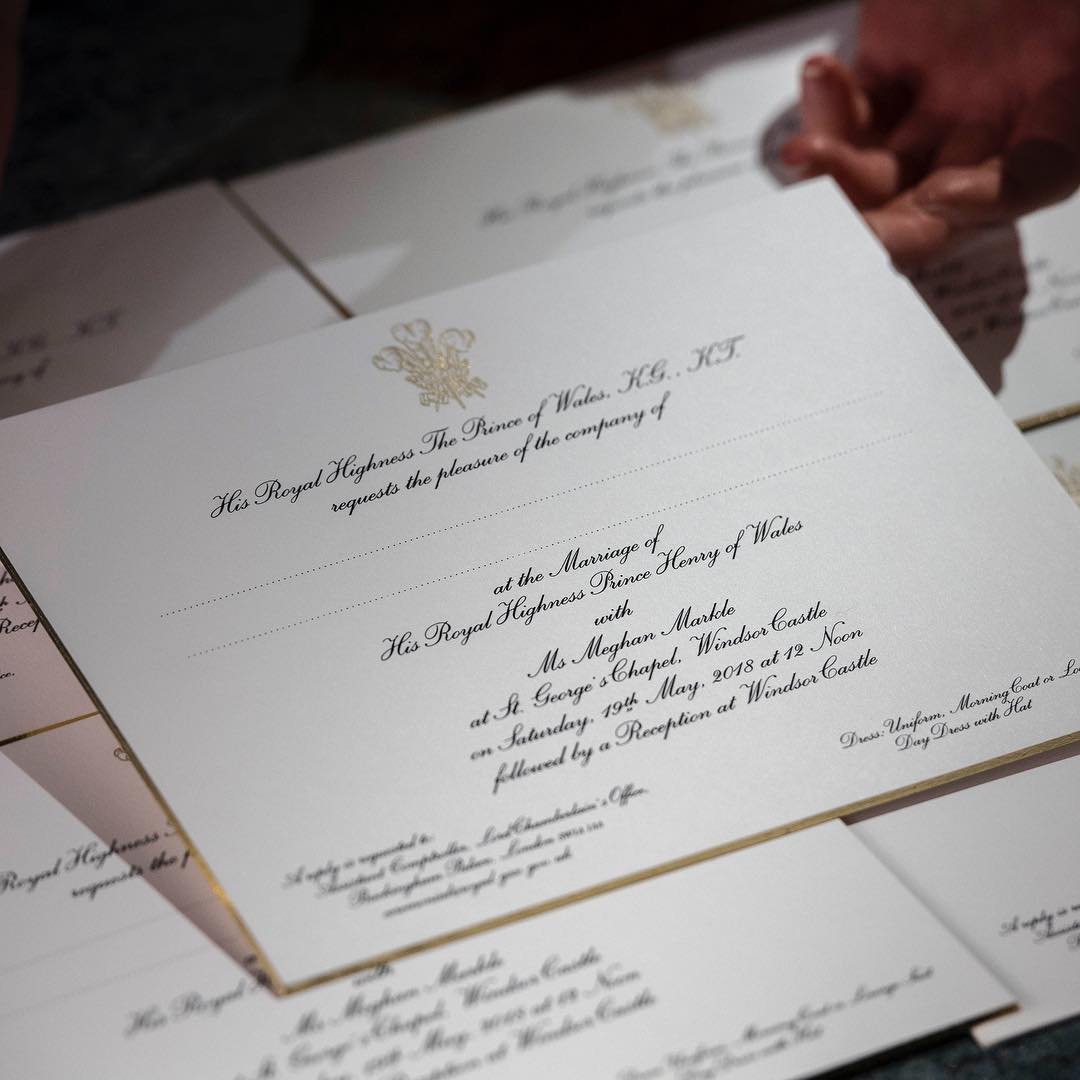 His Royal Highness The Prince of Wales, K.G., K.T.
requests the pleasure of the company of
at the Marriage of
His Royal Highness Prince Henry of Wales
with
Ms Meghan Markle
at St. George's Chapel, Windsor Castle
on Saturday, 19th May, 2018 at 12 Noon
followed by a Reception at Windsor Castle
Dress: Uniform, Morning Coat or
Day Dress with Hat
A reply is requested to:
Assistant Comptroller, Lord Chamberlain's Office,
Buckingham Palace, London
K.G., K.T.
Royal Highness
requests the
His Royal
with
Ms Meghan Markle
St. George's Chapel, Windsor Castle
19th May, 2018 at 12 Noon
Reception at Windsor Castle
Dress: Uniform, Morning Coat or Lounge Suit
Day Dress with Hat
A reply is